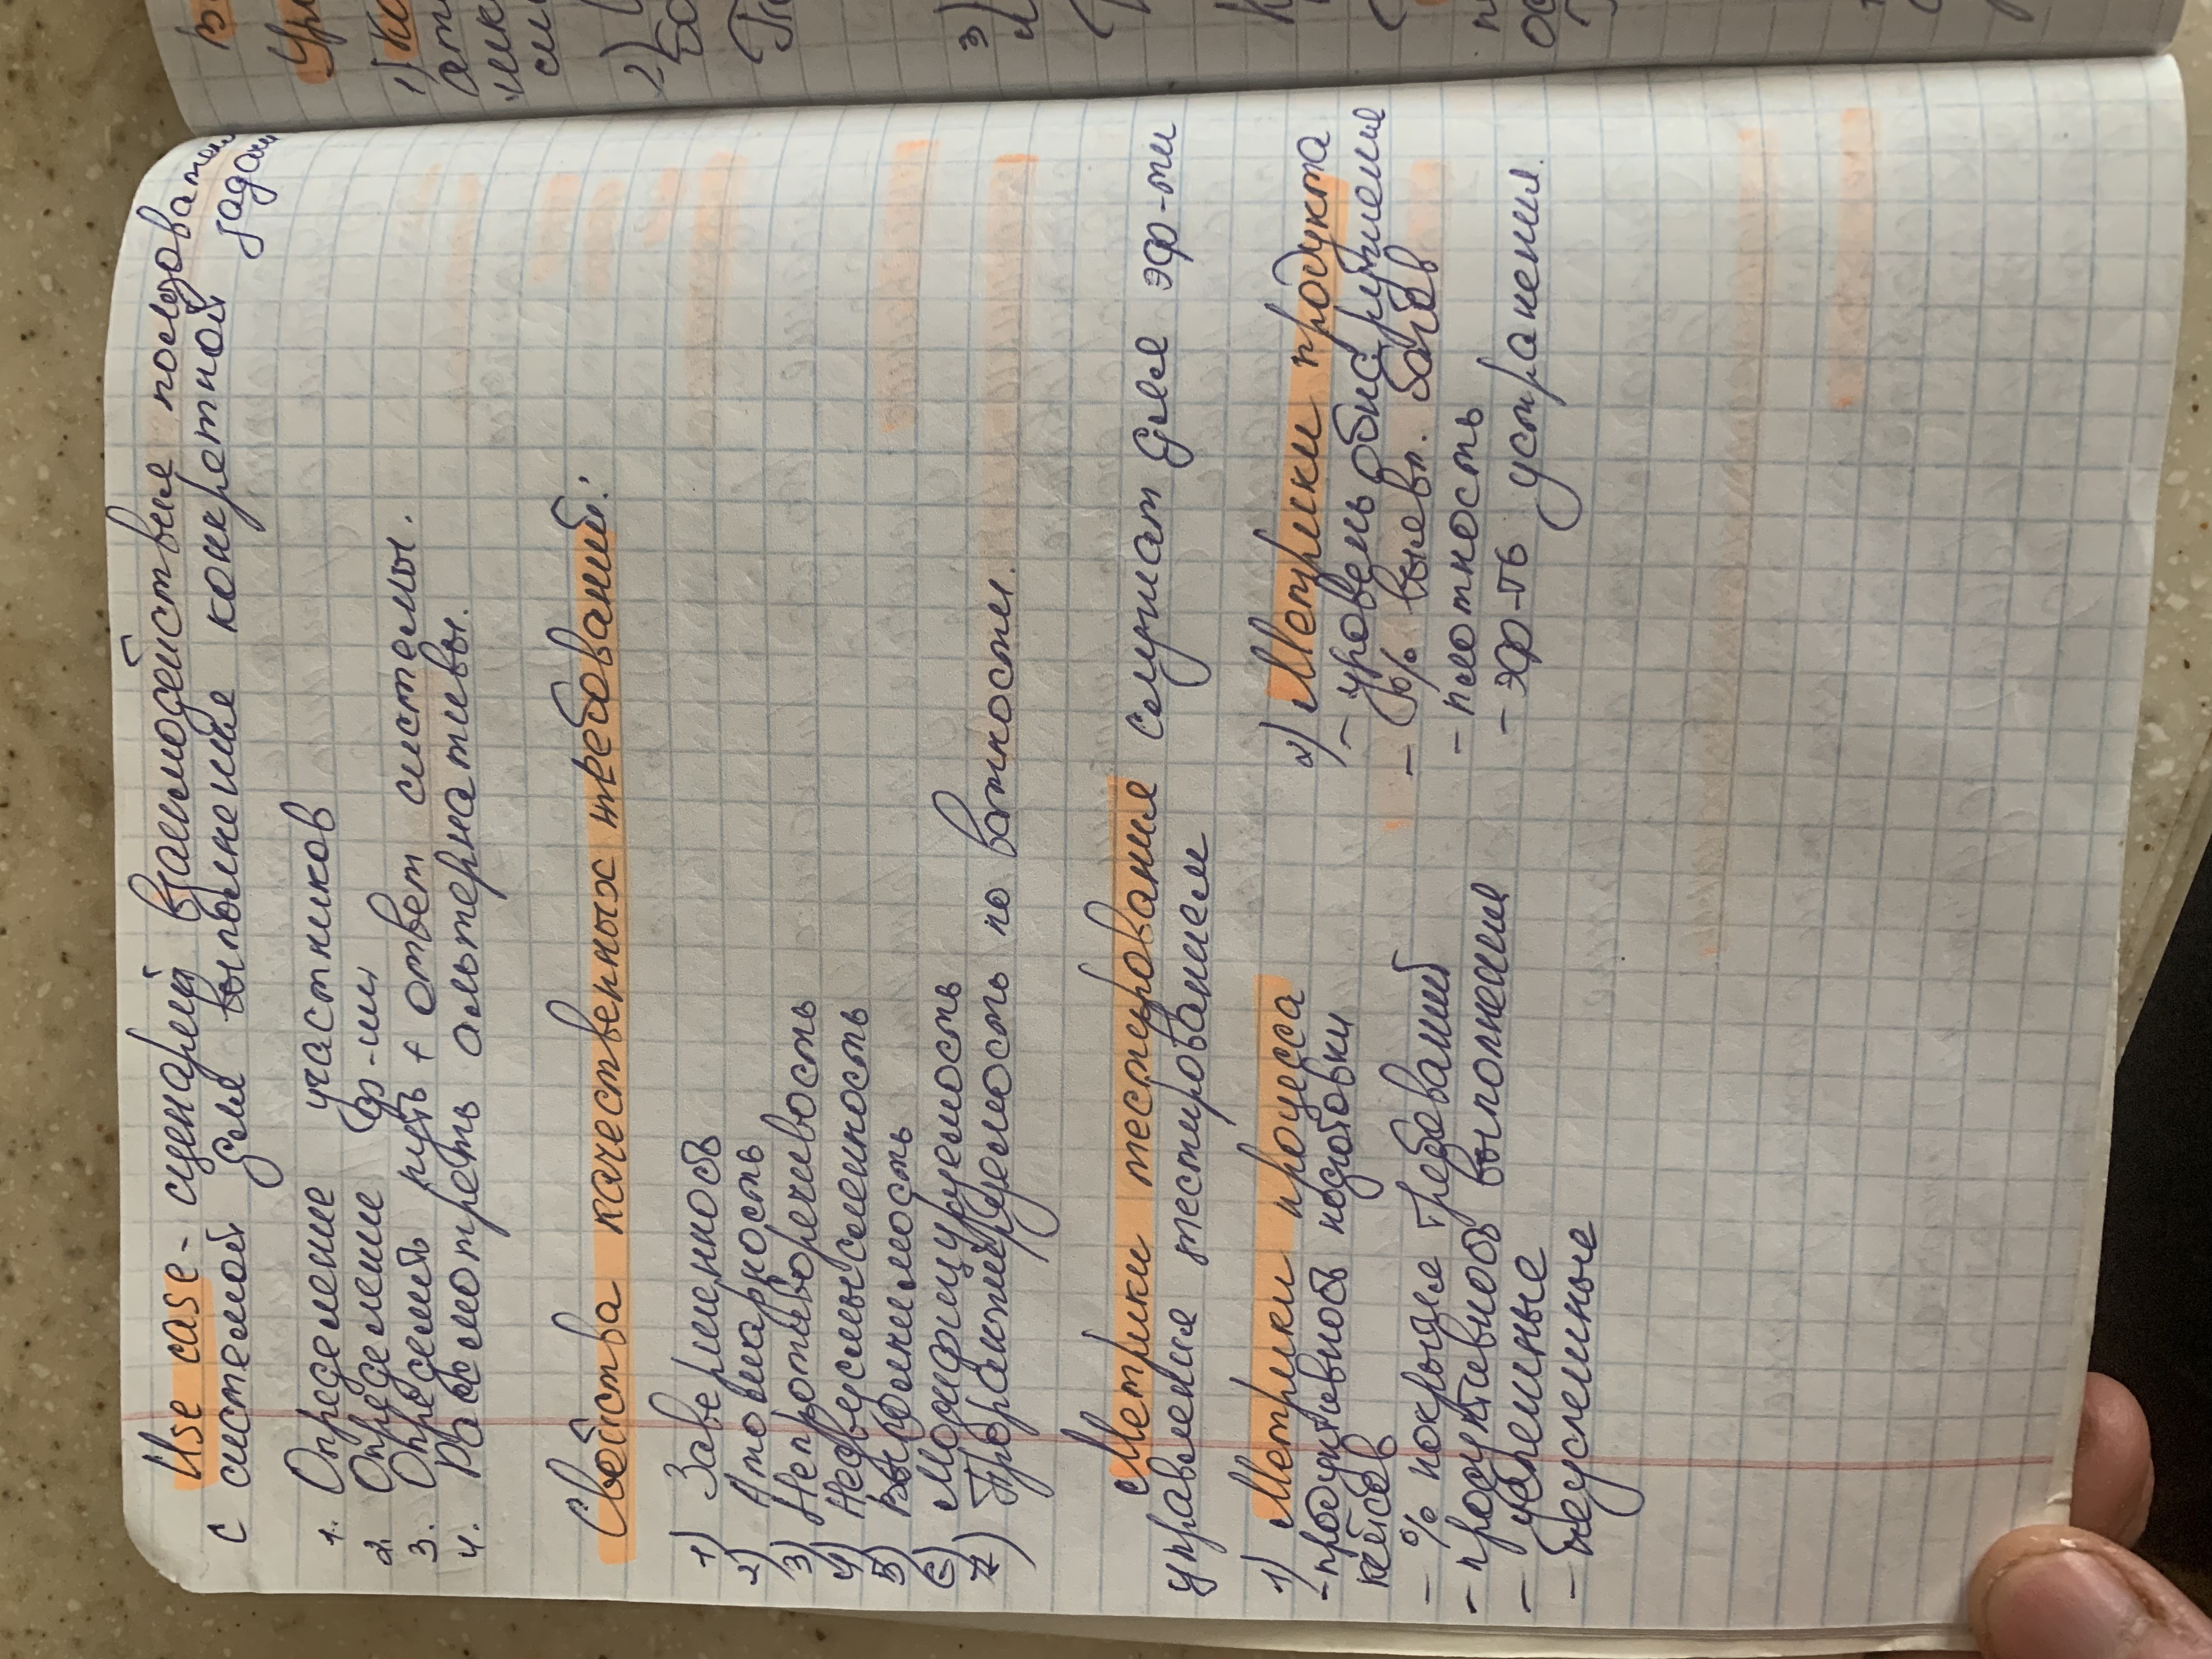 Use case - сценарий взаимодействия пользователя
с системой для выполнения конкретной задачи
1. Определение участников
2. Определение ф-ии
3. Определить путь + ответ системы.
4. Рассмотреть альтернативы.
Свойства качественных требований:
1) Завершенность
2) Атомарность
3) Непротиворечивость
4) Недвусмысленность
5) Выполнимость
6) Модифицируемость
7) Проранжируемость по важности.
Метрики тестирования служат для эф-ти
управления тестированием
1) Метрики процесса
- продуктивность подготовки
кейсов
- % покрытия требований
- продуктивность выполнения
- успешные
- неуспешные
2) Метрики продукта
- уровень обнаружения
- % выявл. багов
- плотность
- эф-ть устранения.